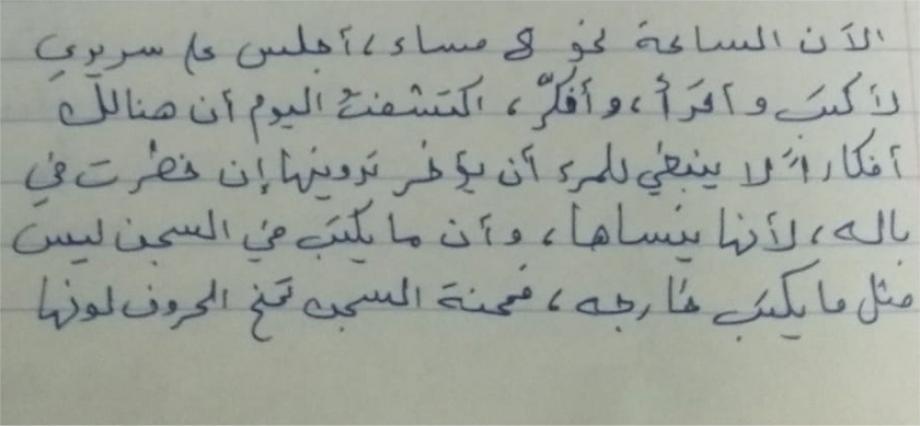 الآن الساعة نحو 8 مساء، أجلس على سريري
لأكتب وأقرأ، وأفكّر، اكتشفتُ اليوم أن هنالك
أفكاراً لا ينبغي للمرء أن يؤخر تدوينها إن خطرت في
باله، لأنها ينساها، وأن ما يكتب في السجن ليس
مثل ما يكتب خارجه، فمحنة السجن تمنح الحروف لونها